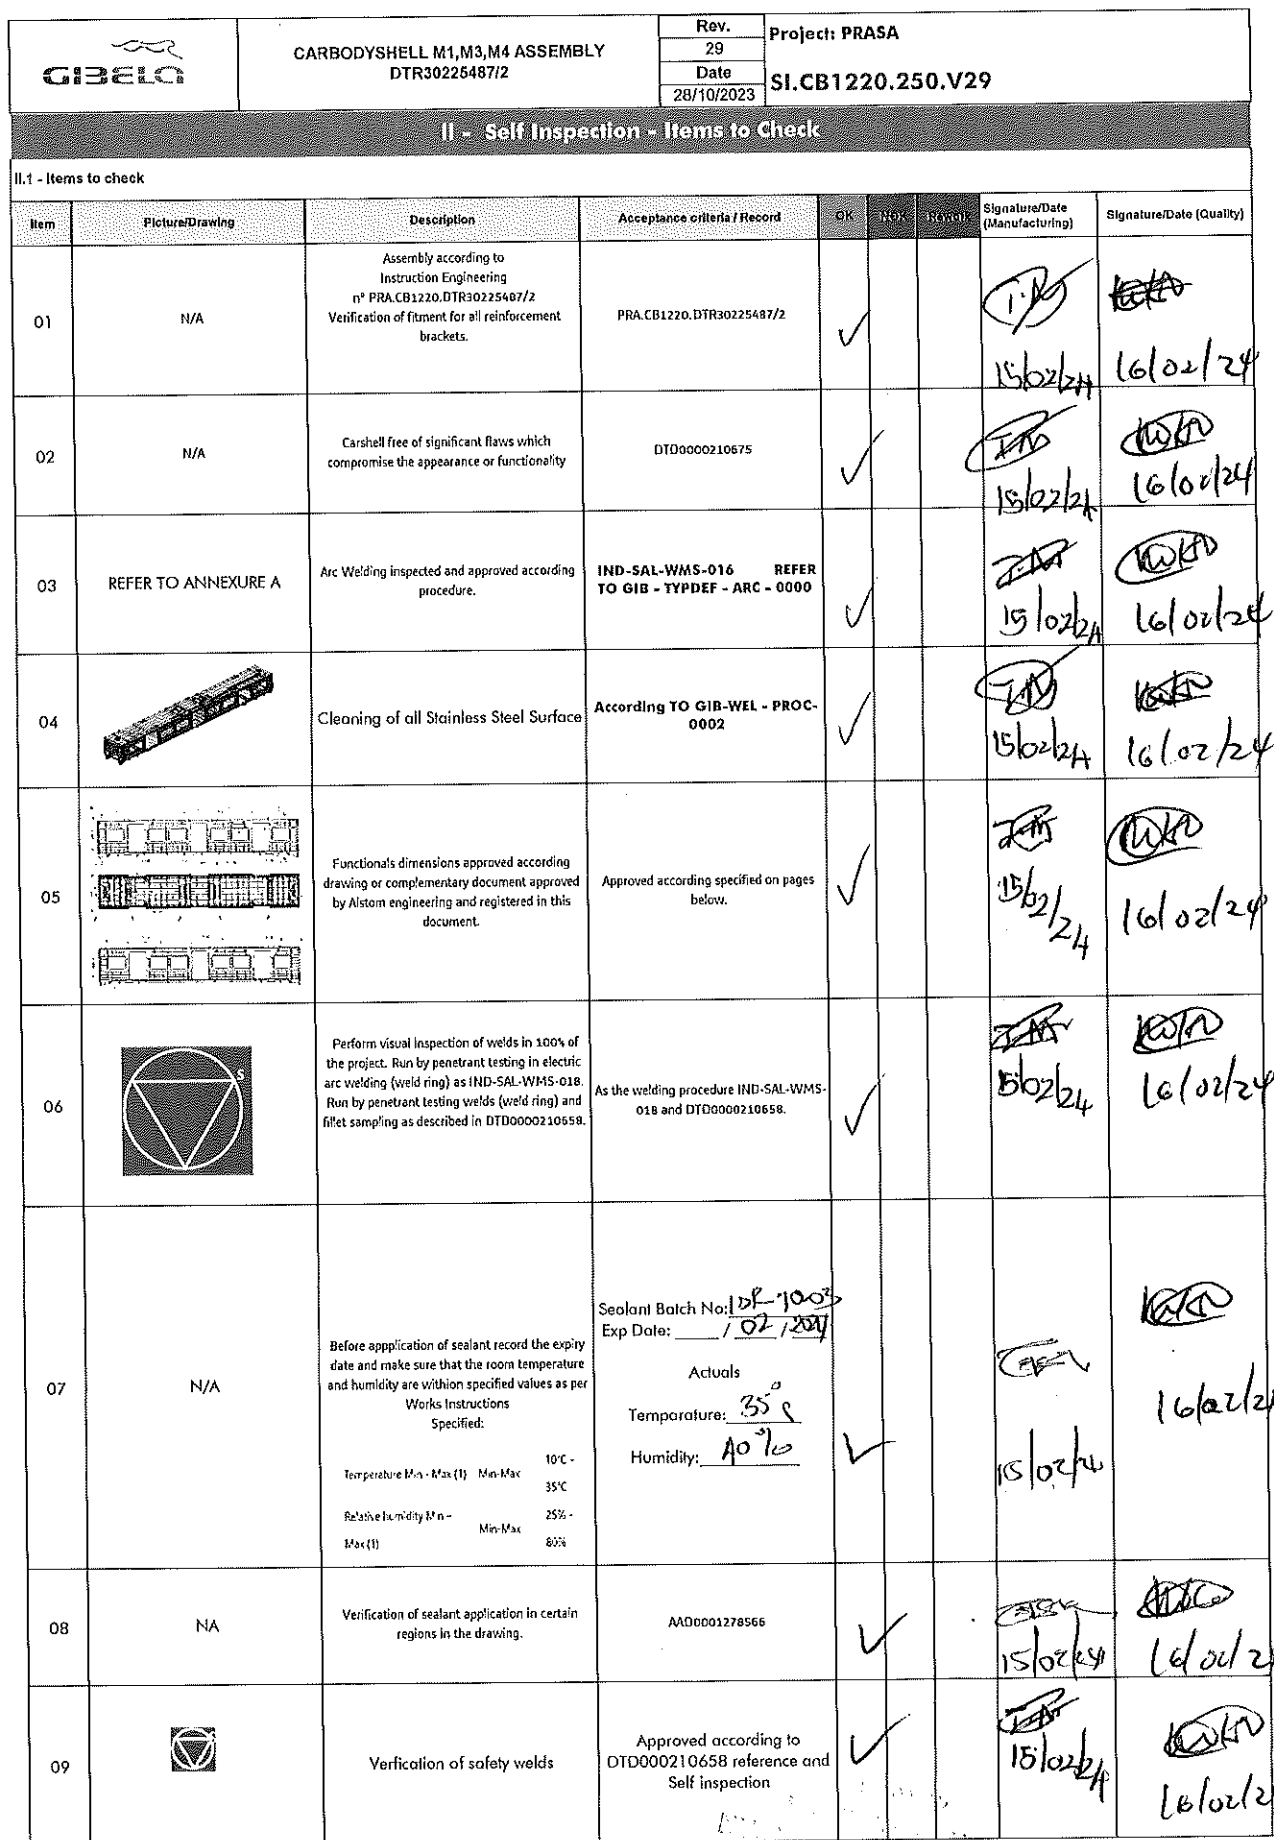 GIBELA
CARBODYSHELL M1,M3,M4 ASSEMBLY
DTR30225487/2
Rev.
29
Date
28/10/2023
Project: PRASA
SI.CB1220.250.V29
II - Self Inspection - Items to Check
II.1 - Items to check
Item
Picture/Drawing
Description
Acceptance criteria / Record
OK
NOK
Rework
Signature/Date
(Manufacturing)
Signature/Date (Quality)
01
N/A
Assembly according to
Instruction Engineering
nº PRA.CB1220.DTR30225487/2
Verification of fitment for all reinforcement
brackets.
PRA.CB1220.DTR30225487/2
15/02/24
16/02/24
02
N/A
Carshell free of significant flaws which
compromise the appearance or functionality
DTD0000210675
15/02/24
16/02/24
03
REFER TO ANNEXURE A
Arc Welding inspected and approved according
procedure.
IND-SAL-WMS-016 REFER
TO GIB - TYPDEF - ARC - 0000
15/02/24
16/02/24
04
Cleaning of all Stainless Steel Surface
According TO GIB-WEL - PROC-
0002
15/02/24
16/02/24
05
Functionals dimensions approved according
drawing or complementary document approved
by Alstom engineering and registered in this
document.
Approved according specified on pages
below.
15/02/24
16/02/24
06
S
Perform visual inspection of welds in 100% of
the project. Run by penetrant testing in electric
arc welding (weld ring) as IND-SAL-WMS-018.
Run by penetrant testing welds (weld ring) and
fillet sampling as described in DTD0000210658.
As the welding procedure IND-SAL-WMS-
018 and DTD0000210658.
15/02/24
16/02/24
07
N/A
Before appplication of sealant record the expiry
date and make sure that the room temperature
and humidity are withion specified values as per
Works Instructions
Specified:
Temperature Min - Max (1) Min-Max 10°C -
35°C
Relative humidity Min -
Max (1) Min-Max 25% -
80%
Sealant Batch No:
Exp Date: / 02 /
Actuals
Temparature: 35°c
Humidity: 40%
15/02/24
16/02/2
08
NA
Verification of sealant application in certain
regions in the drawing.
AAD0001278566
15/02/24
16/02/2
09
Verfication of safety welds
Approved according to
DTD000210658 reference and
Self inspection
15/02/24
16/02/2